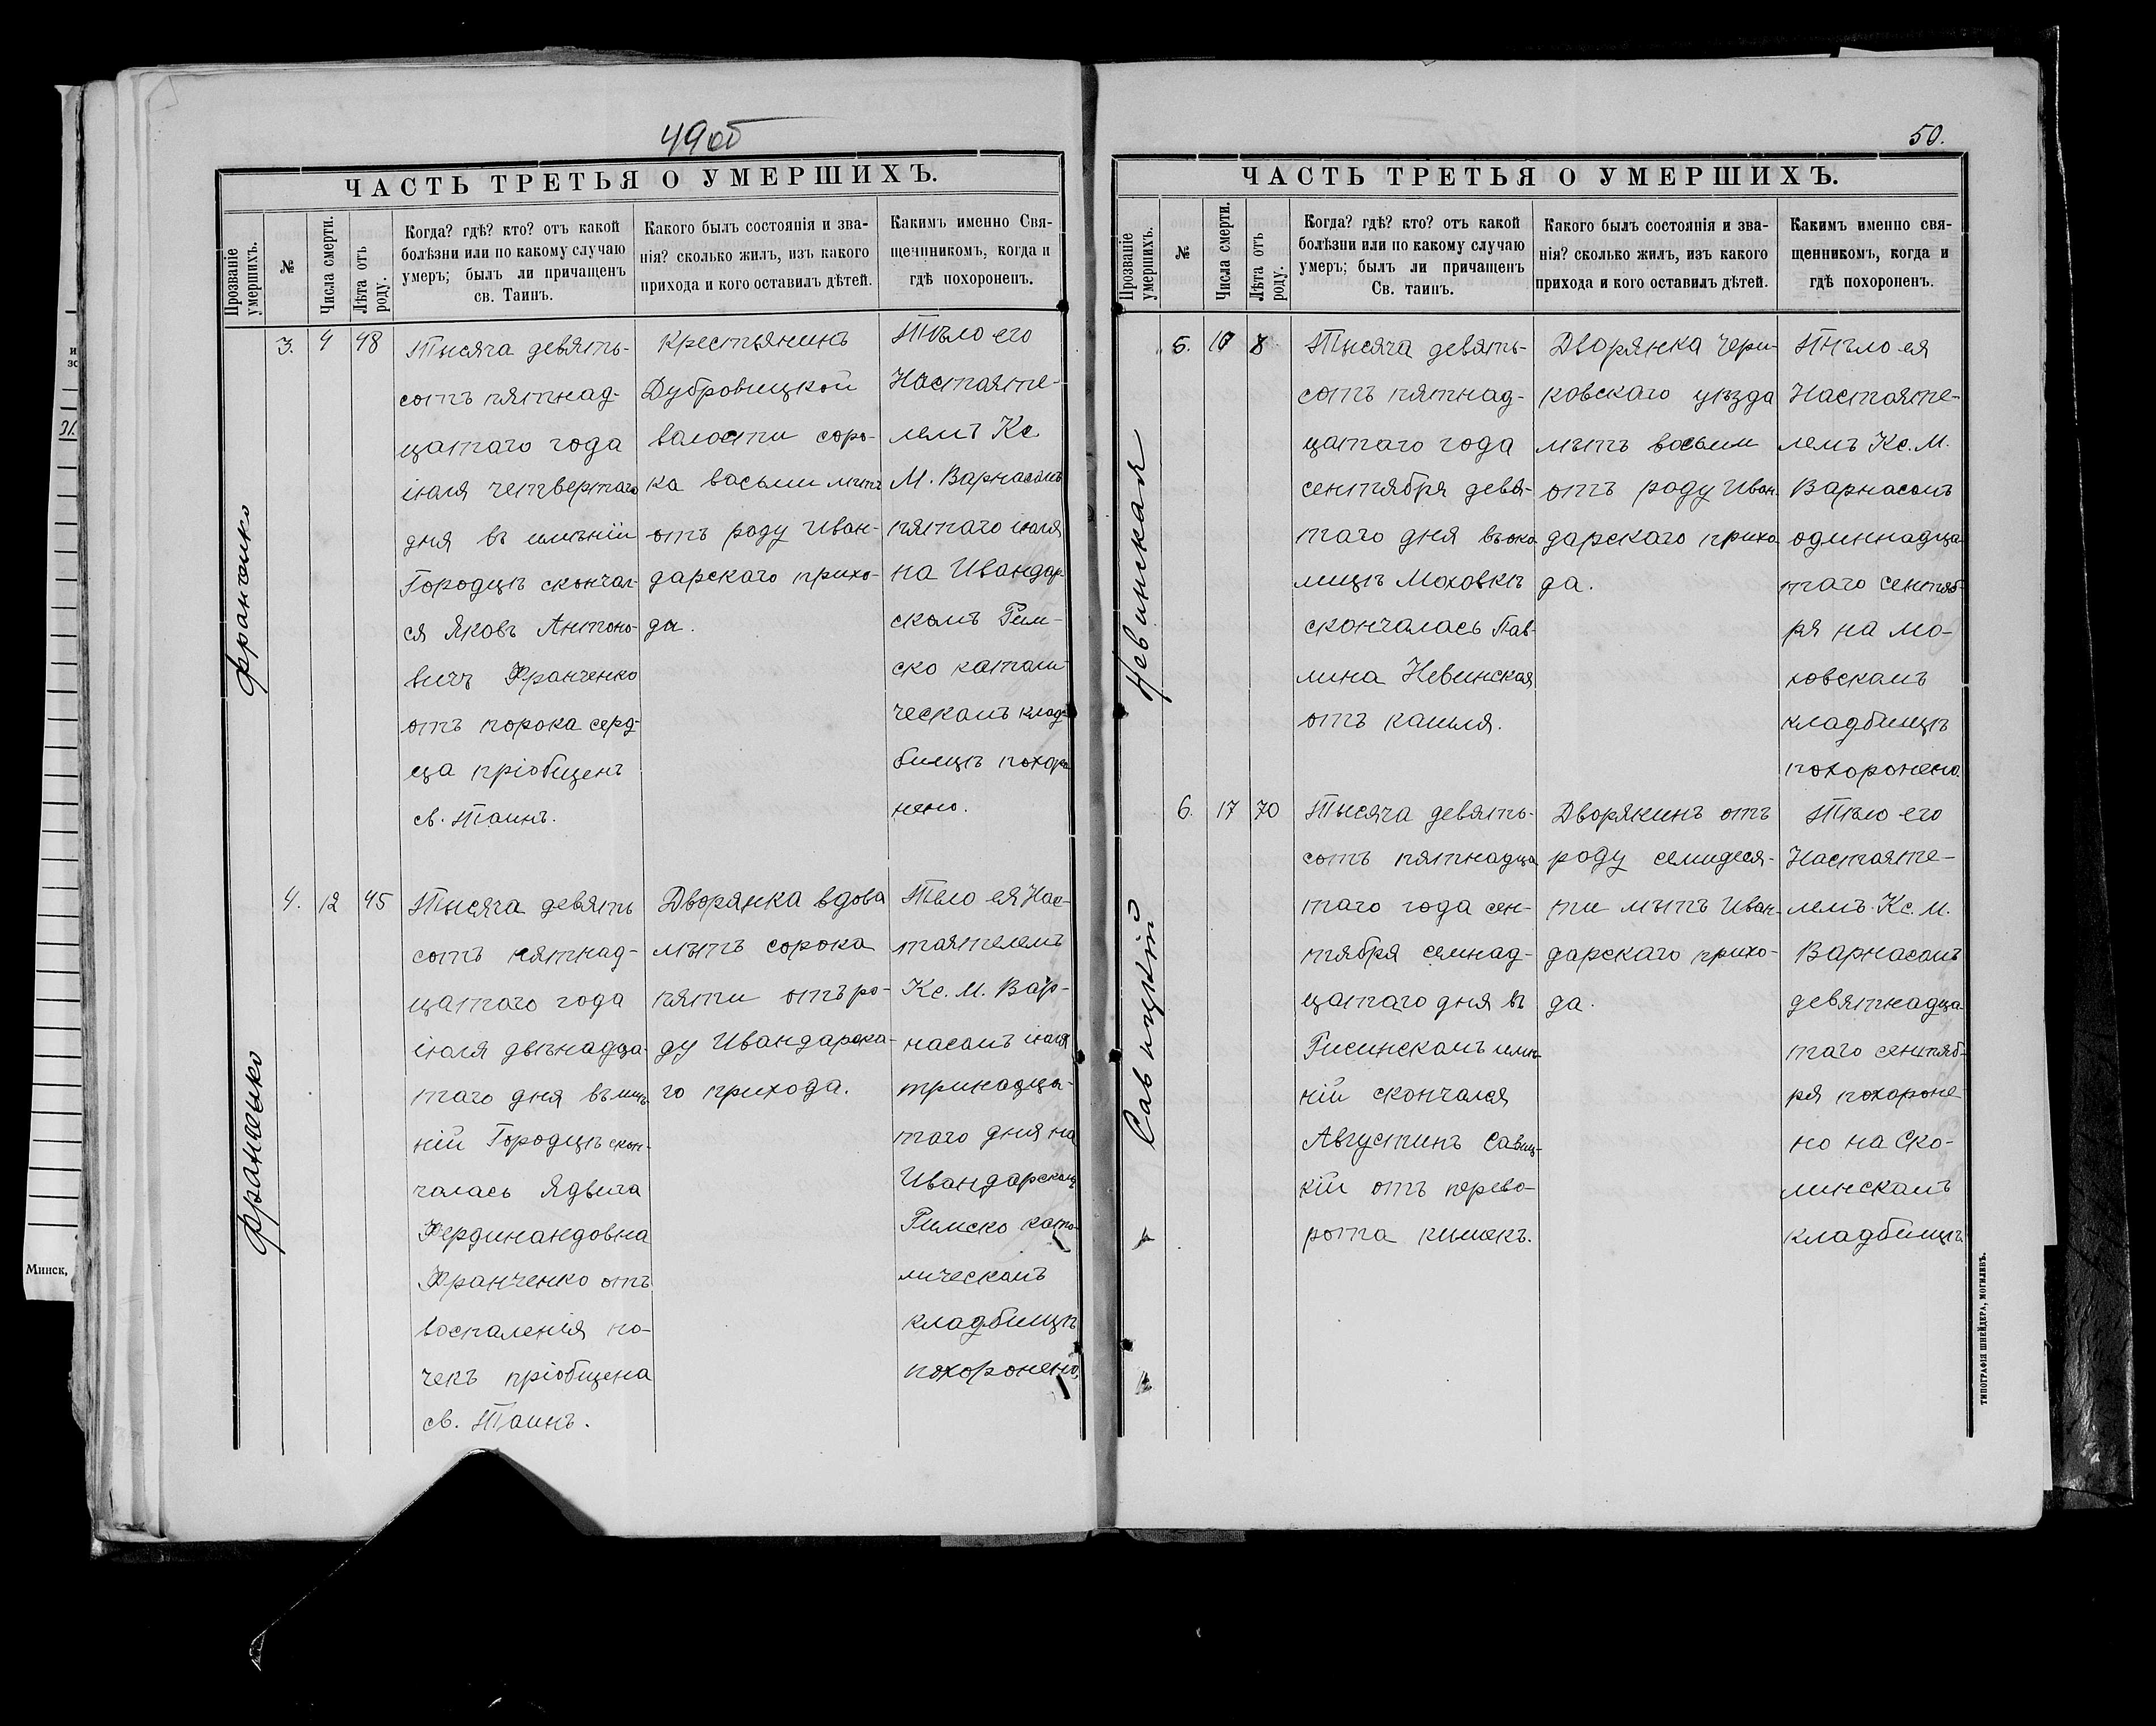 49об
ЧАСТЬ ТРЕТЬЯ О УМЕРШИХЪ.
Прозваніе умершихъ.
№
Числа смерти.
Лѣта отъ роду.
Когда? гдѣ? кто? отъ какой
болѣзни или по какому случаю
умеръ; былъ ли причащенъ
св. Таинъ.
Какого былъ состоянія и зва-
нія? сколько жилъ, изъ какого
прихода и кого оставилъ дѣтей.
Какимъ именно Свя-
щенникомъ, когда и
гдѣ похороненъ.
Франченко
3.
4
48
Тысяча девять-
сотъ пятнад-
цатаго года
іюля четвертаго
дня въ имѣніи
Городцѣ скончал-
ся Яковъ Антоно-
вичъ Франченко
отъ порока серд-
ца пріобщенъ
св. Таинъ.
Крестьянинъ
Дубровицкой
волости соро-
ка восьми лѣтъ
отъ роду Иван-
дарскаго прихо-
да.
Тѣло его
Настояте-
лемъ Кс.
М. Варнасомъ
пятаго іюля
на Ивандар
скомъ Рим-
ско катали-
ческомъ клад-
бищѣ похоро
нено.
Франченко
4.
12
45
Тысяча девять
сотъ пятнад-
цатаго года
іюля двѣнадца-
таго дня въ имѣ
ніи Городцѣ скон-
чалась Ядвига
Фердинандовна
Франченко отъ
воспаленія по-
чекъ пріобщена
св. Таинъ.
Дворянка вдова
лѣтъ сорока
пяти отъ ро-
ду Ивандарска-
го прихода.
Тѣло ея Нас-
тоятелемъ
Кс. М. Вар-
насомъ іюля
тринадца-
таго дня на
Ивандарскомъ
Римско като-
лическомъ
кладбищѣ
похоронено.
50.
ЧАСТЬ ТРЕТЬЯ О УМЕРШИХЪ.
Прозваніе умершихъ.
№
Числа смерти.
Лѣта отъ роду.
Когда? гдѣ? кто? отъ какой
болѣзни или по какому случаю
умеръ; былъ ли причащенъ
Св. таинъ.
Какого былъ состоянія и зва-
нія? сколько жилъ, изъ какого
прихода и кого оставилъ дѣтей.
Какимъ именно свя-
щенникомъ, когда и
гдѣ похороненъ.
Невинская
5.
8
Тысяча девять-
сотъ пятнад-
цатаго года
сентября девя-
таго дня въ око
лицѣ Моховкѣ
скончалась Пав-
лина Невинская
отъ кашля.
Дворянка Чери-
ковскаго уѣзда
лѣтъ восьми
отъ роду Иван
дарскаго прихо
да.
Тѣло ея
Настояте-
лемъ Кс. М.
Варнасомъ
одиннадца
таго сентяб-
ря на Мо-
ховскомъ
кладбищѣ
похоронено.
Савицкій
6.
17
70
Тысяча девять-
сотъ пятнадца
таго года сен-
тября семнад-
цатаго дня въ
Рисинскомъ имѣ
ніи скончался
Августинъ Савиц-
кій отъ перево-
рота кишекъ.
Дворянинъ отъ
роду семидеся-
ти лѣтъ Иван-
дарскаго прихо-
да.
Тѣло его
Настояте-
лемъ Кс. М.
Варнасомъ
девятнадца
таго сентяб-
ря похороне-
но на Ско-
линскомъ
кладбищѣ.
ТИПОГРАФІЯ ШНЕЙДЕРА, МОГИЛЕВЪ.
Минск,